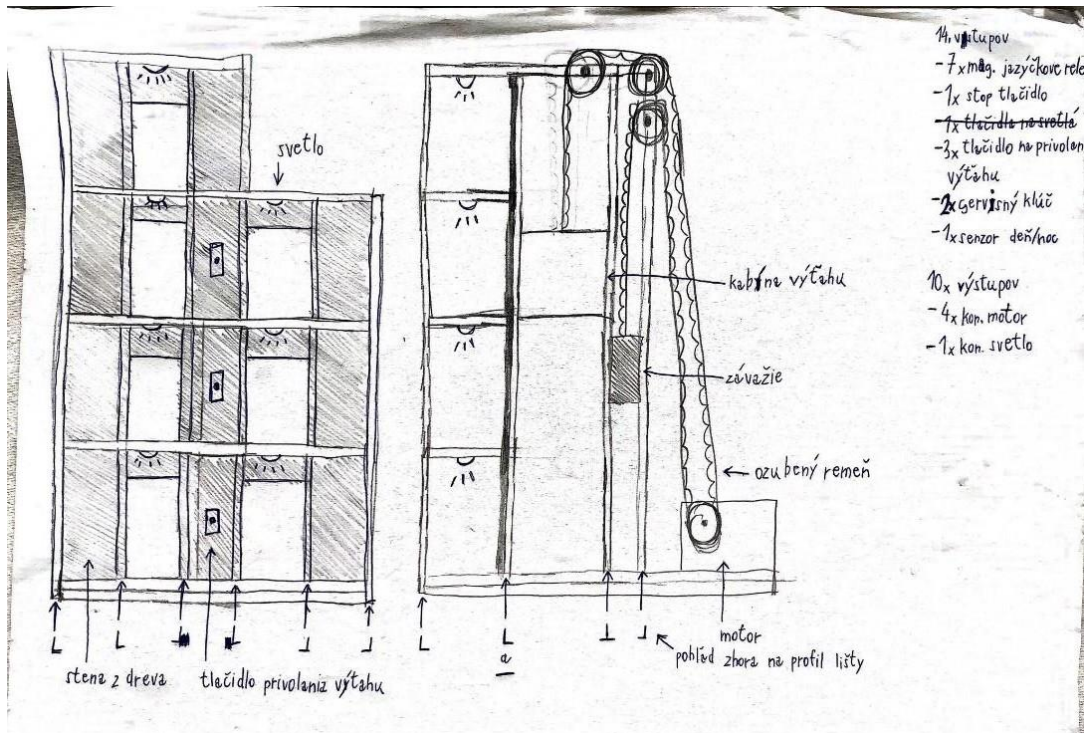 svetlo
stena z dreva
tlačidlo privolania výťahu
kabína výťahu
závažie
ozubený remeň
motor
pohľad zhora na profil lišty
a
14. vstupov
- 7x mag. jazýčkove rele
- 1x stop tlačidlo
- 1x tlačidlo na svetlá
- 3x tlačidlo na privolan
výťahu
- 2x servisný kľúč
- 1x senzor deň/noc
10x výstupov
- 4x kon. motor
- 1x kon. svetlo